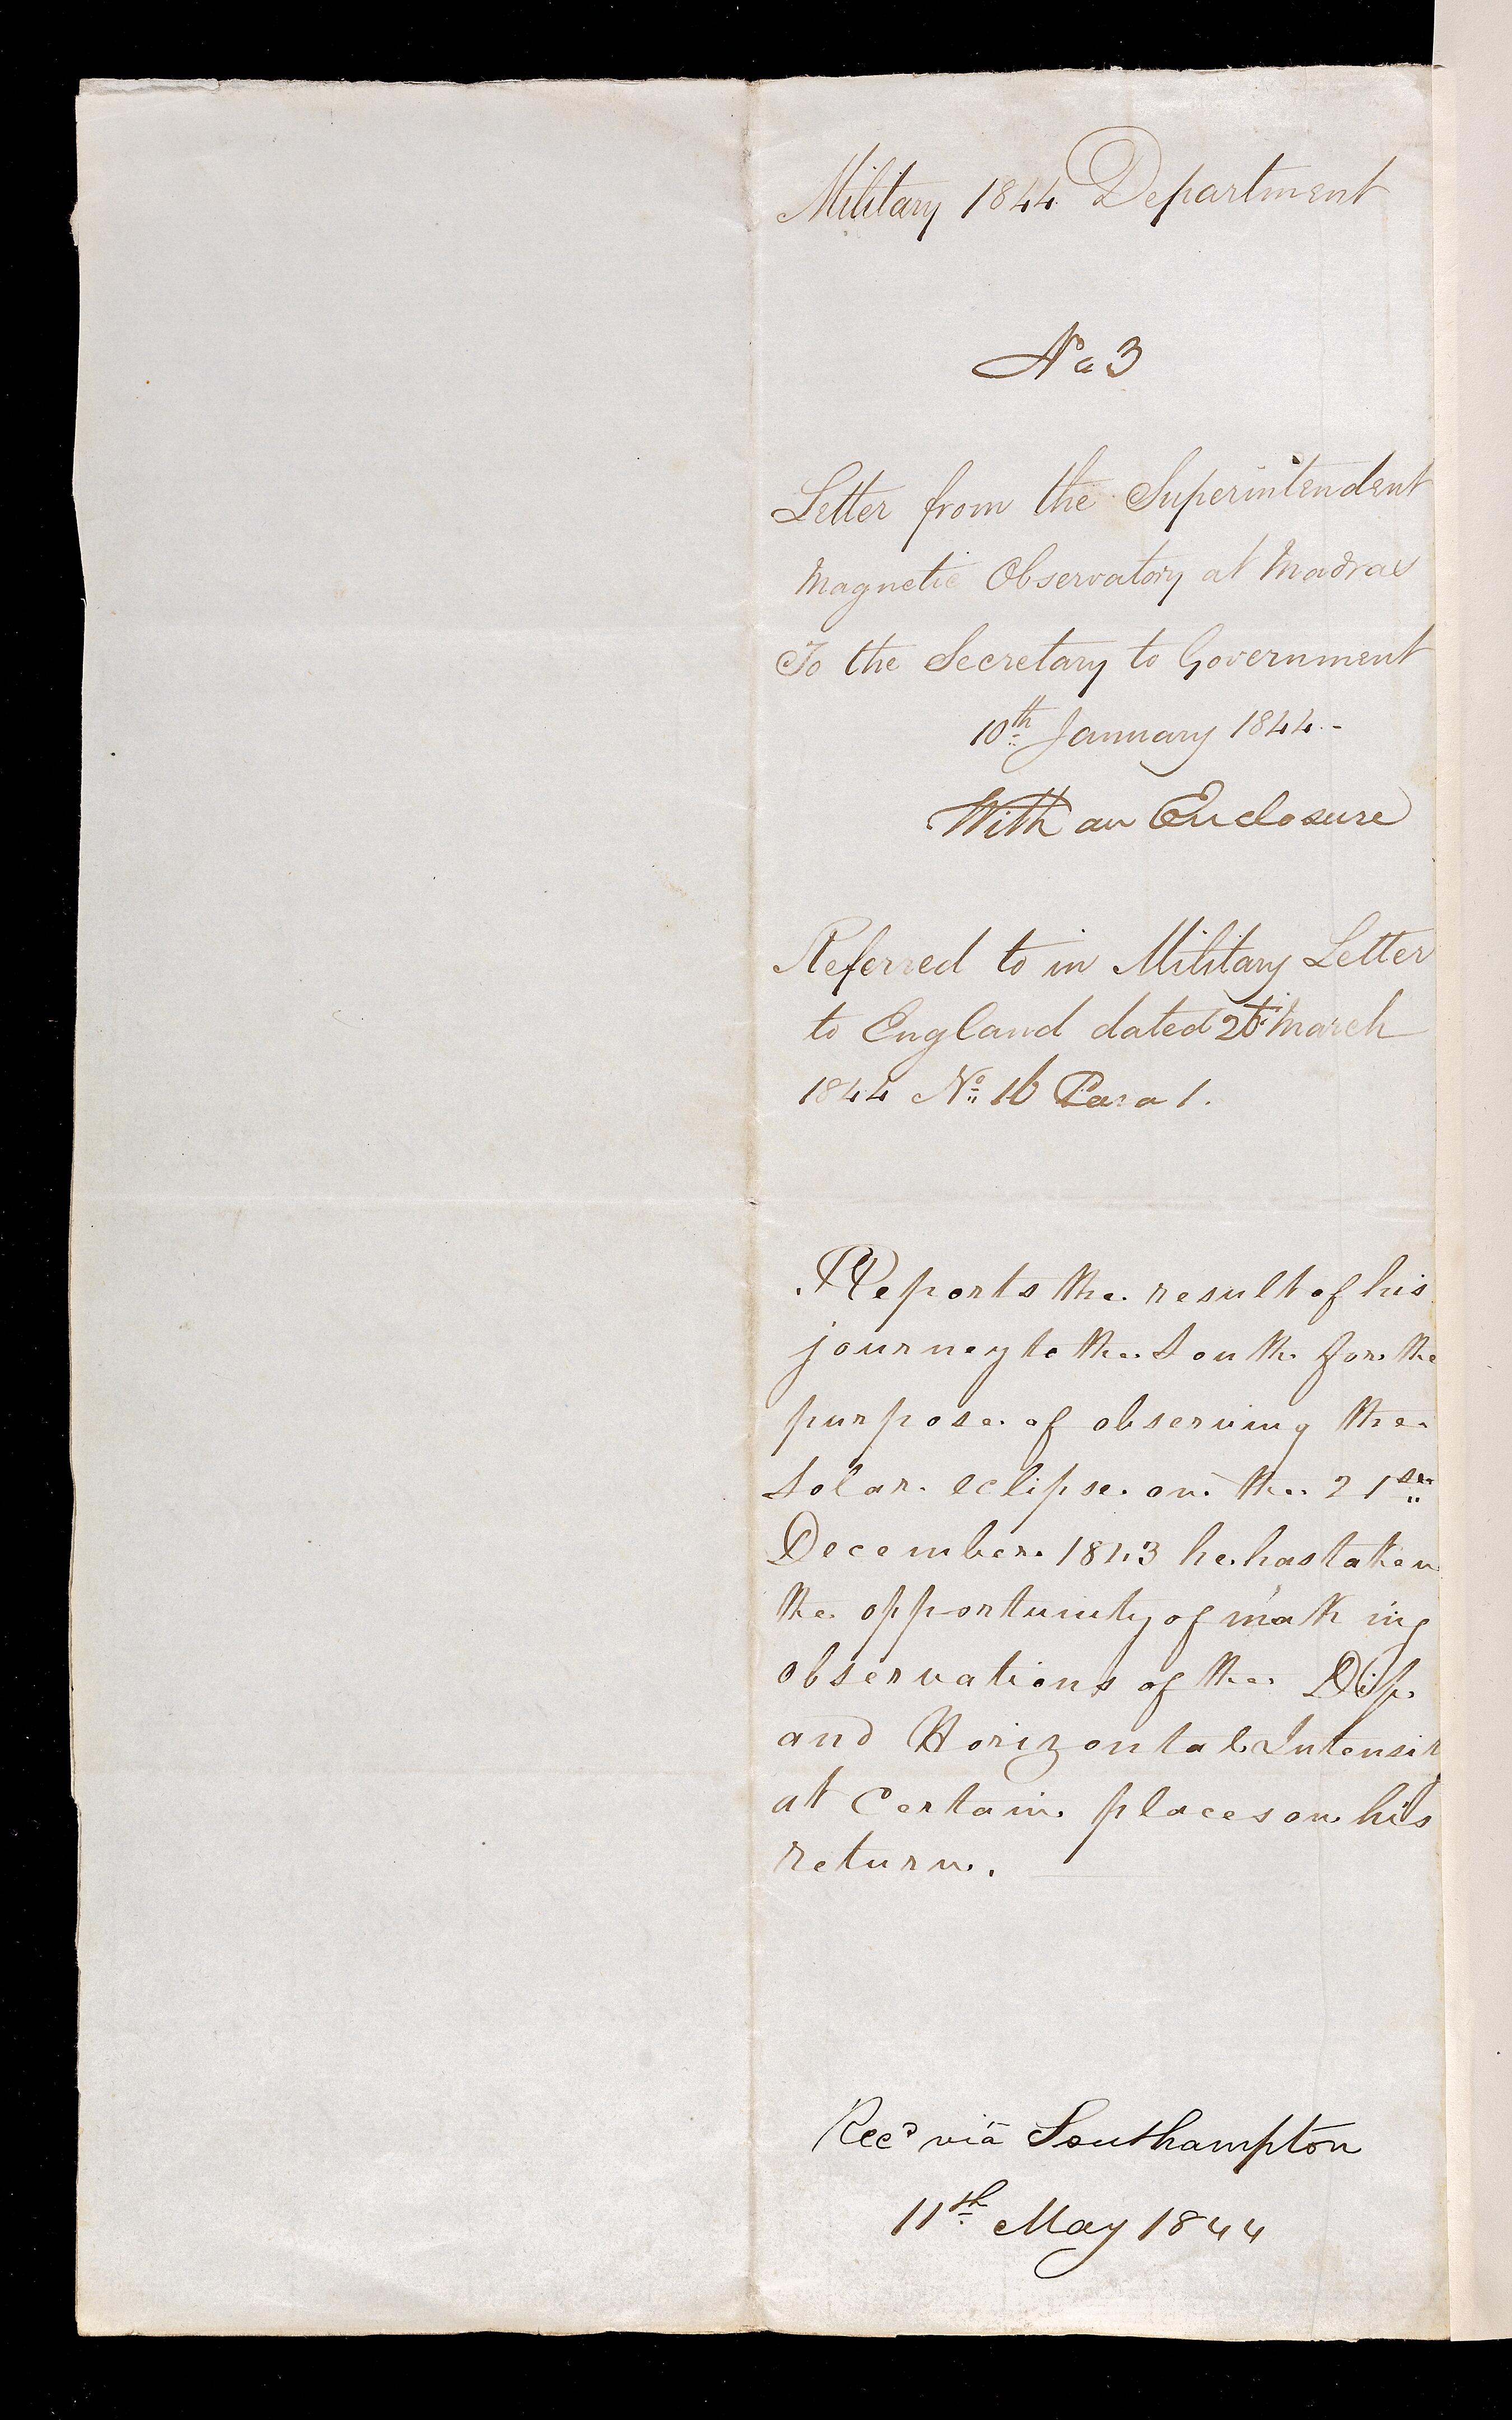 Military 1844 Department
No 3
Letter from the Superintendent
Magnetic Observatory at Madras
To the Secretary to Government
10th January 1844.-
With an Enclosure
Referred to in Military Letter
to England dated 26th March
1844 No. 16 Para 1.
Reports the result of his
journey to the South for the
purpose of observing the
Solar eclipse on the 21st
December 1843 he has taken
the opportunity of making
observations of the Dip
and Horizontal Intensit
at Certain places on his
return.
Recd via Southampton
11th May 1844